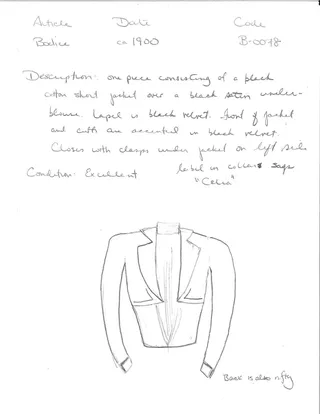 Article Date Code
Bodice ca 1900 B-0078
Description: one piece consisting of a black
cotton short jacket over a black satin under-
blouse. Lapel is black velvet. Front of jacket
and cuffs are accented in black velvet.
Closes with clasps under jacket on left side
Condition: Excellent label in collar says
"Celia"
Back is also nifty